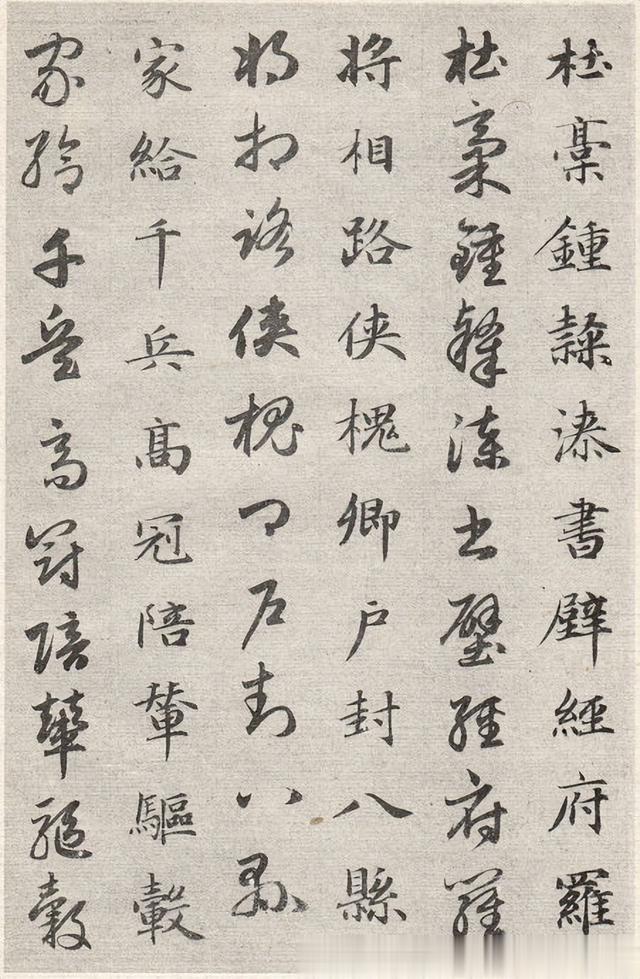 杜稾鍾隸漆書壁經府羅
杜稾鍾隸漆書壁經府羅
將相路俠槐卿户封八縣
將相路俠槐卿户封八縣
家給千兵髙冠陪輦驅轂
家給千兵高冠陪輦驅轂